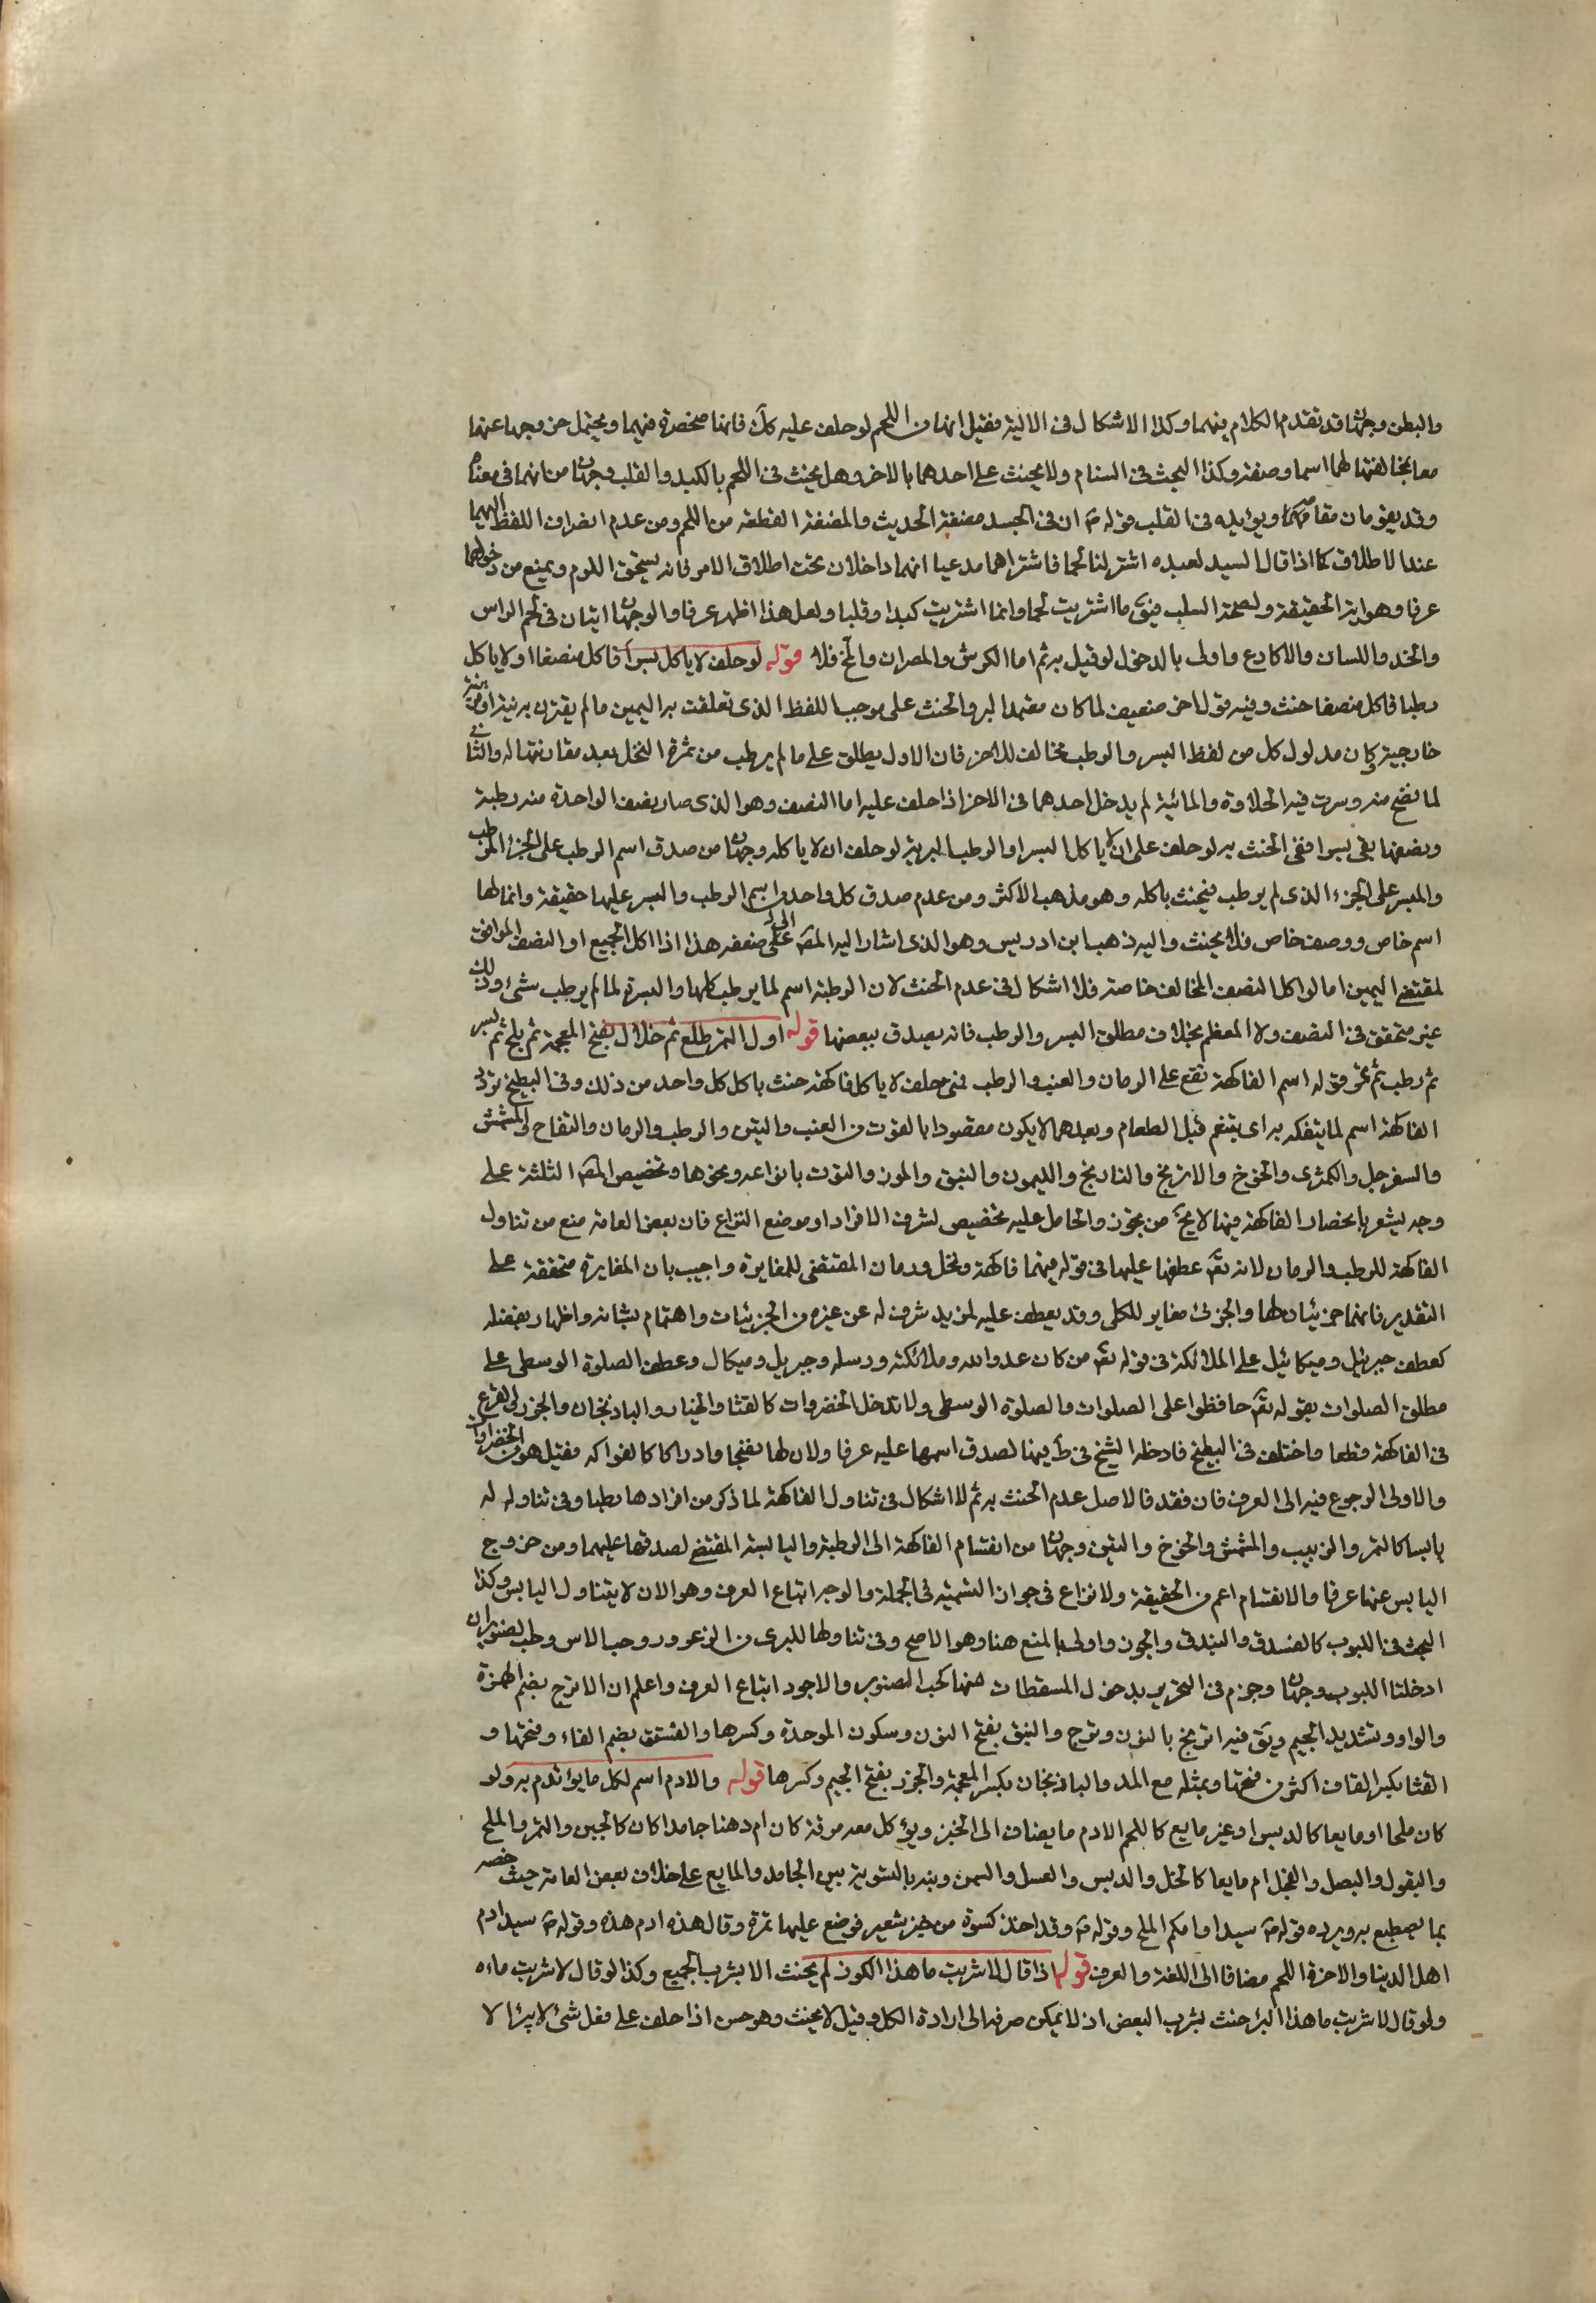 والبطن وجهان قد تقدم الكلام فيهما وكذا الاشكال في الالية فقيل انها من اللحم لو حلف عليه كك فانها منحصرة فيهما ويحتمل خروجها عنهما
معا لمخالفتها لهما اسما وصفة وكذا البحث في السنام ولا يحنث على احدهما بالاخر وهل يحنث في اللحم بالكبد والقلب وجهان من انهما في معناه
وقد يقومان مقامه ويؤيده في القلب قوله ص ان في الجسد مضغة الحديث والمضغة القطعة من اللحم ومن عدم انصراف اللفظ اليهما
عند الاطلاق كما اذا قال السيد لعبده اشتر لنا لحما فاشتراهما مدعيا انهما داخلان تحت اطلاق الامر فانه يستحق اللوم ويمنع من دخولهما
عرفا وهو اية الحقيقة ولصحة السلب فيق ما اشتريت لحما وانما اشتريت كبدا وقلبا ولعل هذا اظهر عرفا والوجهان اتيان في لحم الراس
والخد واللسان والاكارع واولى بالدخول لو قيل به ثم اما الكرش والمصران والمخ فلا قوله لو حلف لا ياكل بسرا فاكل منصفا او لا ياكل
رطبا فاكل منصفا حنث وفيه قول اخر ضعيف لما كان معتمد البر والحنث على موجب اللفظ الذي تعلقت به اليمين ما لم يقترن به نية او قرينة
خارجية وكان مدلول كل من لفظ البسر والرطب مخالف للاخر فان الاول يطلق على ما لم يرطب من ثمرة النخل بعد مقارنتها له والثاني
لما نضج منه وسرت فيه الحلاوة والمائية لم يدخل احدهما في الاخر اذا حلف عليه اما النصف وهو الذي صار نصف الواحدة منه رطبة
ونصفها بقي بسرا ففي الحنث به لو حلف على ان لا ياكل البسر او الرطب البرية لو حلف ان لا ياكله وجهان من صدق اسم الرطب على الجزء المرطب
والبسر على الجزء الذي لم يرطب فيحنث باكله وهو مذهب الاكثر ومن عدم صدق كل واحد من اسم الرطب والبسر عليها حقيقة وانما لها
اسم خاص ووصف خاص فلا يحنث واليه ذهب ابن ادريس وهو الذي اشار اليه المصه الى ضعفه هذا اذا اكل الجميع او النصف الموافق
لمقتضى اليمين اما لو اكل النصف المخالف خاصة فلا اشكال في عدم الحنث لان الرطبة اسم لما يرطب كلها والبسرة لما لم يرطب شئ وذلك
غير متحقق في النصف ولا المعظم بخلاف مطلق البسر والرطب فانه يصدق ببعضها قوله اول التمر طلع ثم خلال بفتح المعجمة ثم بلح ثم بسر
ثم رطب ثم تمر قوله اسم الفاكهة تقع على الرمان والعنب والرطب فمن حلف لا ياكل فاكهة حنث باكل كل واحد من ذلك وفي البطيخ تردد
الفاكهة اسم لما يتفكه به اي يتنعم قبل الطعام وبعده مما لا يكون مقصودا بالقوت من العنب والتين والرطب والرمان والتفاح والمشمش
والسفرجل والكمثرى والخوخ والاترنج والنارنج والليمون والنبق والموز والتوت بانواعه ونحوها وتخصيص المصه الثلثة على
وجه يشعر بانحصار الفاكهة فيها لا يخ من تجوز والحامل عليه تخصيص لشرف الافراد او موضع النزاع فان بعض العامة منع من تناول
الفاكهة للرطب والرمان لانه تع عطفها عليها في قوله فيهما فاكهة ونخل ورمان المقتضي للمغايرة واجيب بان المغايرة متحققة على
التقدير فانهما جزئيان لها والجزئي مغاير للكلي وقد يعطف عليه لمزيد شرف له عن غيره من الجزئيات واهتمام بشانه واظهار بفضله
كعطف جبرئيل وميكائيل على الملائكة في قوله تع من كان عدوا لله وملائكته ورسله وجبريل وميكال وعطف الصلوة الوسطى على
مطلق الصلوات بقوله تع حافظوا على الصلوات والصلوة الوسطى ولا تدخل الخضروات كالقثا والخيار والبادنجان والجزر والقرع
في الفاكهة قطعا واختلف في البطيخ فادخله الشيخ في ط فيها لصدق اسمها عليه عرفا ولان لها نضجا وادراكا كالفواكه فقيل هو من الخضراوات
والاولى الرجوع فيه الى العرف فان فقد فالاصل عدم الحنث به ثم لا اشكال في تناول الفاكهة لما ذكر من افرادها رطبا وفي تناوله له
يابسا كالتمر والزبيب والمشمش والخوخ والتين وجهان من انقسام الفاكهة الى الرطبة واليابسة المقتضي لصدقها عليهما ومن خروج
اليابس عنها عرفا والانقسام اعم من الحقيقة ولا نزاع في جواز التسمية في الجملة والوجه اتباع العرف وهو الان لا يتناول اليابس وكذا
البحث في اللبوب كالفستق والبندق والجوز واولى بالمنع هنا وهو الاصح وفي تناولها للبري من الزعرور وحب الاس وحب الصنوبر ان
ادخلنا اللبوب وجهان وجزم في التحرير بدخول المسقطات منها كحب الصنوبر والاجود اتباع العرف واعلم ان الاترج بضم الهمزة
والواو وتشديد الجيم ويق فيه اترنج بالنون وترج والنبق بفتح النون وسكون الموحدة وكسرها والفستق بضم الفاء وفتحها و
القثا بكسر القاف اكثر من فتحها وبمثله مع المد والباذنجان بكسر المعجمة والجزر بفتح الجيم وكسرها قوله والادم اسم لكل ما يؤتدم به ولو
كان ملحا او مايعا كالدبس او غير مايع كاللحم الادم ما يضاف الى الخبز ويؤكل معه مرقة كان ام دهنا جامدا كان كالجبن والتمر والملح
والبقول والبصل والفجل ام مايعا كالخل والدبس والعسل والسمن ونبه بالتسوية بين الجامد والمايع على خلاف بعض العامة حيث خصه
بما يصطبغ به ويرده قوله ص سيد ادامكم الملح وقوله ص وقد اخذ كسرة من خبز شعير فوضع عليها تمرة وقال هذه ادم هذه وقوله ص سيد ادم
اهل الدنيا والاخرة اللحم مضافا الى اللغة والعرف قوله اذا قال لا شربت ماء هذا الكوز لم يحنث الا بشرب الجميع وكذا لو قال لا شربت ماءه
ولو قال لا شربت ماء هذا البئر حنث بشرب البعض اذ لا يمكن صرفه الى ارادة الكل وقيل لا يحنث وهو حسن اذا حلف على فعل شئ لا يبرا الا